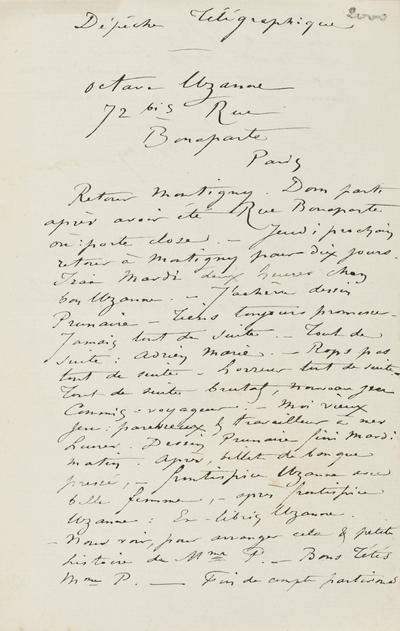 Dépêche Télégraphique 2000
Octave Uzanne
72 bis Rue
Bonaparte
Paris
Retour Montigny. Dom parti
après avoir été Rue Bonaparte
où : porte close. – Jeudi prochain
retour à Montigny pour dix jours.
Irai Mardi deux heures chez
bon Uzanne. – J'achève dessin
Prunaire – Tiens toujours promesse –
Jamais tout de suite. – Tout de
suite : Adrien Marie. – Rops pas
tout de suite – horreur tout de suite –
Tout de suite brutal, nouveau jeu
Commis-voyageur ! – Moi vieux
jeu : paresseux & travailleur à mes
heures. Dessin Prunaire fini Mardi
matin. Après, billet de banque
pressé, – frontispice Uzanne avec
belle femme, – après frontispice
Uzanne : Ex-libris Uzanne.
– Nous voir, pour arranger cela & petite
histoire de Mme P. – Bons Tétés
Mme P. – Fin de compte